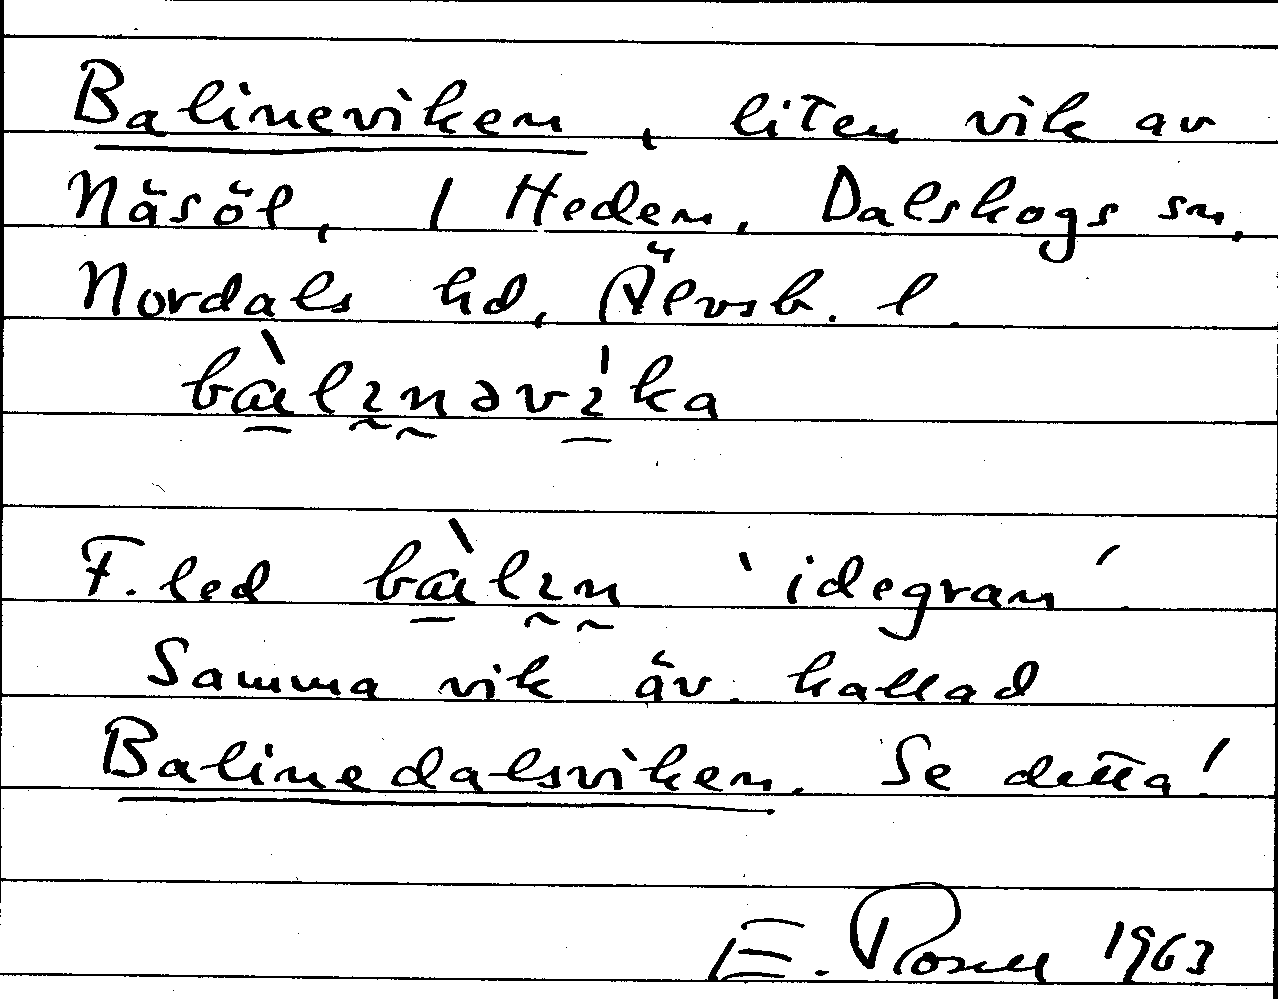 Balineviken, liten vik av
Näsöl, / Heden, Dalskogs sn,
Nordals hd, Älvsb. l.
bàlɩnəvɩ́ka
F. led bàlɩn ‵idegran′
Samma vik äv. kallad
Balinedalsviken. Se detta!
E. Rosell 1963